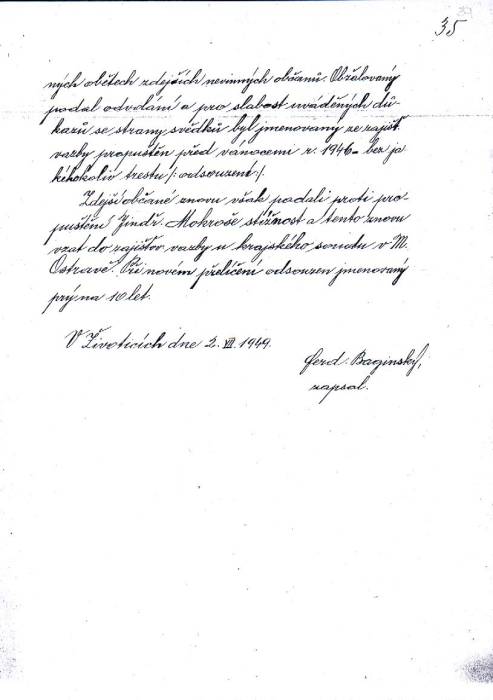 35
ných obětech zdejších nevinných občanů. Obžalovaný
podal odvolání a pro slabost uváděných dů-
kazů se strany svědků byl jmenovaný ze zajišť.
vazby propuštěn před vánocemi r. 1946 - bez ja
kéhokoliv trestu /: odsouzení :/.
Zdejší občané znovu však podali proti pro-
puštění Jindř. Mokroše stížnost a tento znovu
vzat do zajišťov. vazby u krajského soudu v M.
Ostravě. Při novém přelíčení odsouzen jmenovaný
prý na 10 let.
V Životicích dne 2. VII. 1949.
Ferd. Baginský,
zapsal.